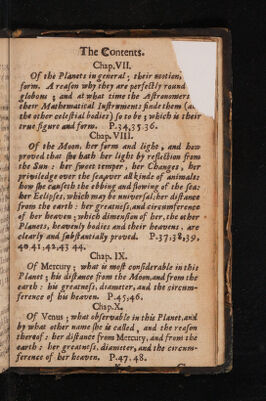 The Contents.
Chap. VII.
Of the Planets in general; their motion,
form. A reason why they are perfectly round
globous; and at what time the Astronomers
their Mathematical Instruments finde them (as
the other celestial bodies) so to be; which is their
true figure and form. P.34,35.36.
Chap. VIII.
Of the Moon, her form and light, and how
proved that she hath her light by reflection from
the Sun: her sweet temper, her Changes, her
priviledge over the sea, over all kinde of animals:
how she causeth the ebbing and flowing of the sea:
her Eclipses, which may be universal: her distance
from the earth: her greatness, and circumference
of her heaven; which dimension of her, the other
Planets, heavenly bodies and their heavens. are
clearly and substantially proved. P.37,38,39,
40,41,42,43 44.
Chap. IX.
Of Mercury; what is most considerable in this
Planet; his distance from the Moon, and from the
earth: his greatness, diameter, and the circum-
ference of his heaven. P.45,46.
Chap. X.
Of Venus; what observable in this Planet, and
by what other name she is called, and the reason
thereof: her distance from Mercury, and from the
earth: her greatness, diameter, and the circum-
ference of her heaven. P.47, 48.